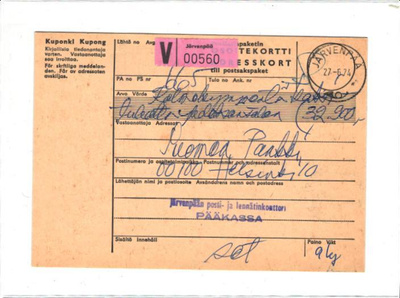 Kuponki Kupong
Kirjallista tiedonantoa
varten. Vastaanottaja
saa irroittaa.
För skriftliga meddelanden.
Får av adressaten
avskiljas.
Lähtö no Avg.
V
Järvenpää
00560
paketin
TEKORTTI
ESSKORT
till postsakspaket
JÄRVENPÄÄ
27-6.74
PA no PS nr
665
Tulo no Ank. nr
Arvo Värde
32,900,-
Vastaanottaja Adressat
Suomen Pankki
Postinumero ja osoitepaikka Postnummer och adresseort
00100 Helsinki 10
Lähettäjän nimi ja postiosoite Avsändarens namn och postadress
Järvenpään posti- ja lennätinkonttori
PÄÄKASSA
Sisältö Innehåll
set
Paino Vikt